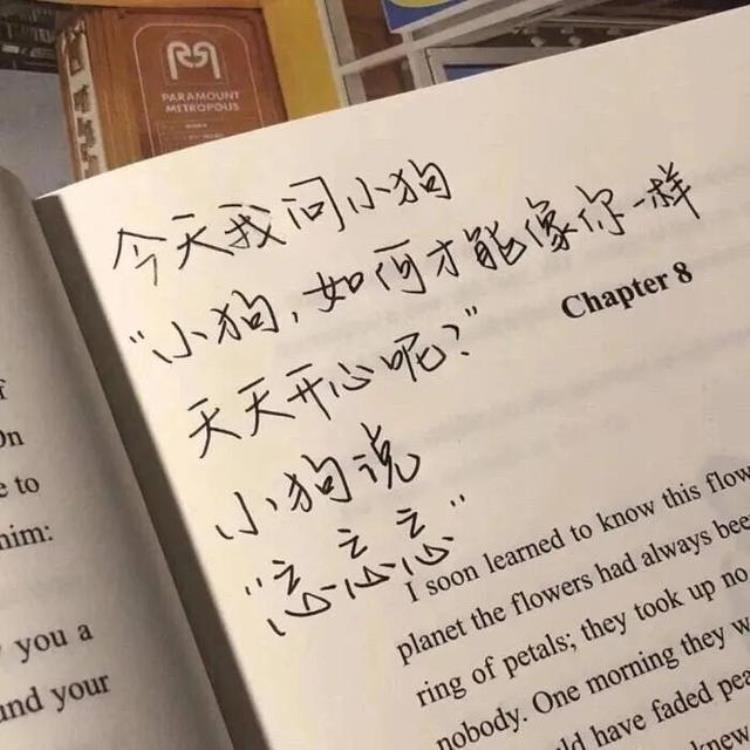 PARAMOUNT
METROPOLIS
今天我问小狗
"小狗,如何才能像你一样
天天开心呢?"
小狗说
"忘忘忘"
On
e to
him:
you a
and your
Chapter 8
I soon learned to know this flow
planet the flowers had always bee
ring of petals; they took up no
nobody. One morning they w
ld have faded pea
knew